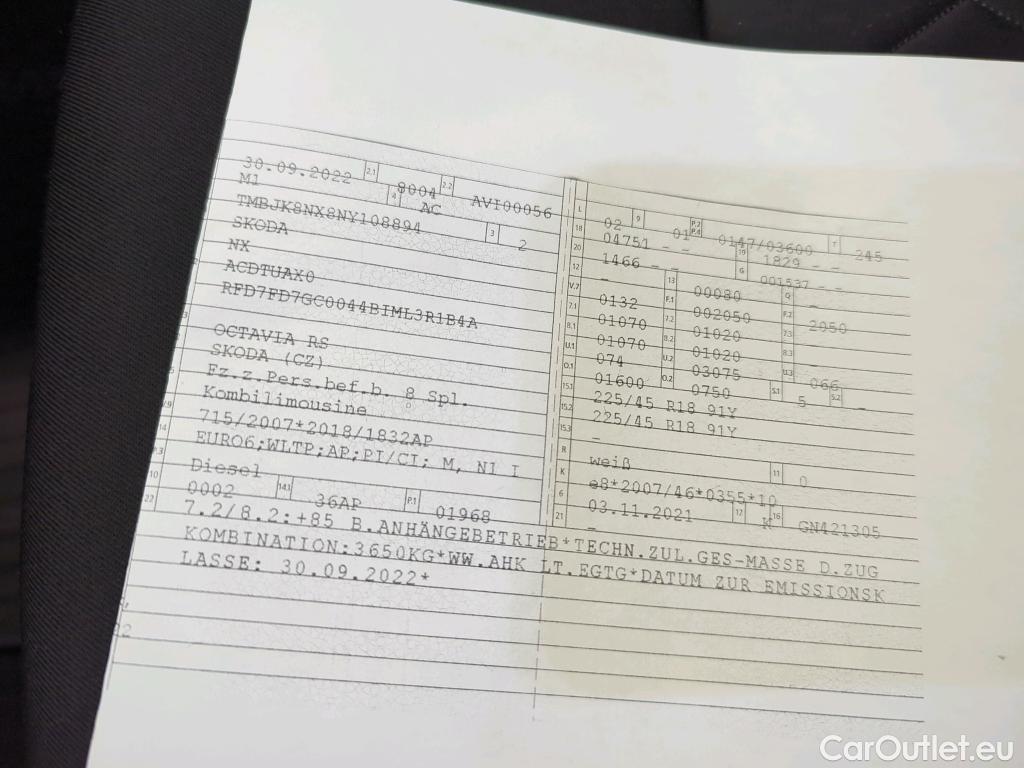 30.09.2022 2.1 8004 2.2 AVI00056
M1 4 AC
TMBJK8NX8NY108894 3 2
SKODA
NX
ACDTUAX0
RFD7FD7GC0044BIML3R1B4A
OCTAVIA RS
SKODA (CZ)
Fz.z.Pers.bef.b. 8 Spl.
Kombilimousine
715/2007*2018/1832AP
EURO6;WLTP;AP;PI/CI; M, N1 I
14
P.3 Diesel
10 0002 14.1 36AP P.1 01968
L 02 9 01 P.2 P.4 0147/03600 T 245
18 04751 - - 19 1829 - -
20 1466 - - G 001537 - -
12 - 13 00080 Q -
V.7 0132 F.1 002050 F.2 2050
7.1 01070 7.2 01020 7.3 -
8.1 01070 8.2 01020 8.3
U.1 074 U.2 03075 U.3 066
O.1 01600 O.2 0750 S.1 5 S.2 -
15.1 225/45 R18 91Y
15.2 225/45 R18 91Y
15.3 -
R weiß 11 0
K e8*2007/46*0355*10
6 03.11.2021 17 K 16 GN421305
21 -
22 7.2/8.2:+85 B.ANHÄNGEBETRIEB*TECHN.ZUL.GES-MASSE D.ZUG
KOMBINATION:3650KG*WW.AHK LT.EGTG*DATUM ZUR EMISSIONSK
LASSE: 30.09.2022*
CarOutlet.eu